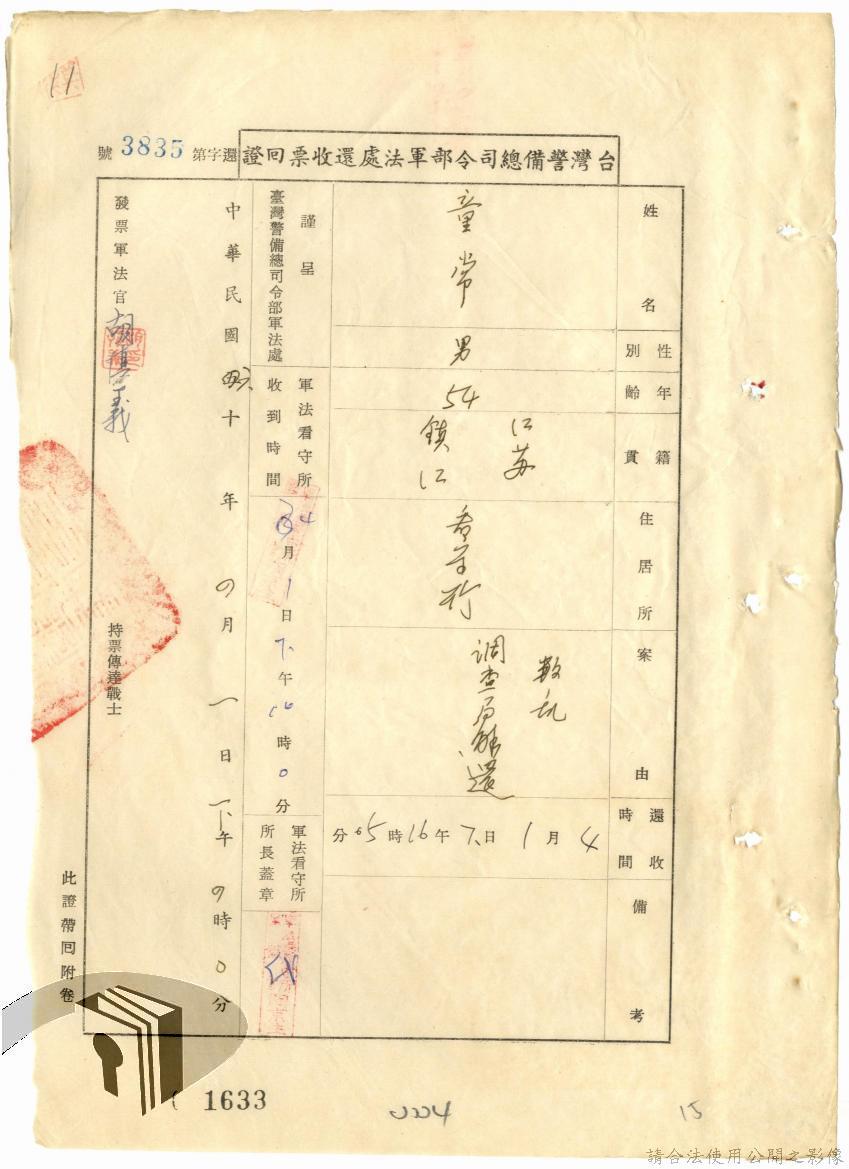 11
台灣警備總司令部軍法處還收票回證
還字第3835號
姓名
童常
性別
男
年齡
54
籍貫
江苏
鎮江
住居所
案由
叛乱
調查局解還
還收時間
4月1日下午16時05分
備考
謹呈
臺灣警備總司令部軍法處
軍法看守所收到時間
4月1日下午16時0分
軍法看守所所長蓋章
代
中華民國 十 年 月一日下午 時0分
發票軍法官
胡 義
持票傳達戰士
此證帶回附卷
1633
15
請合法使用公開之影像